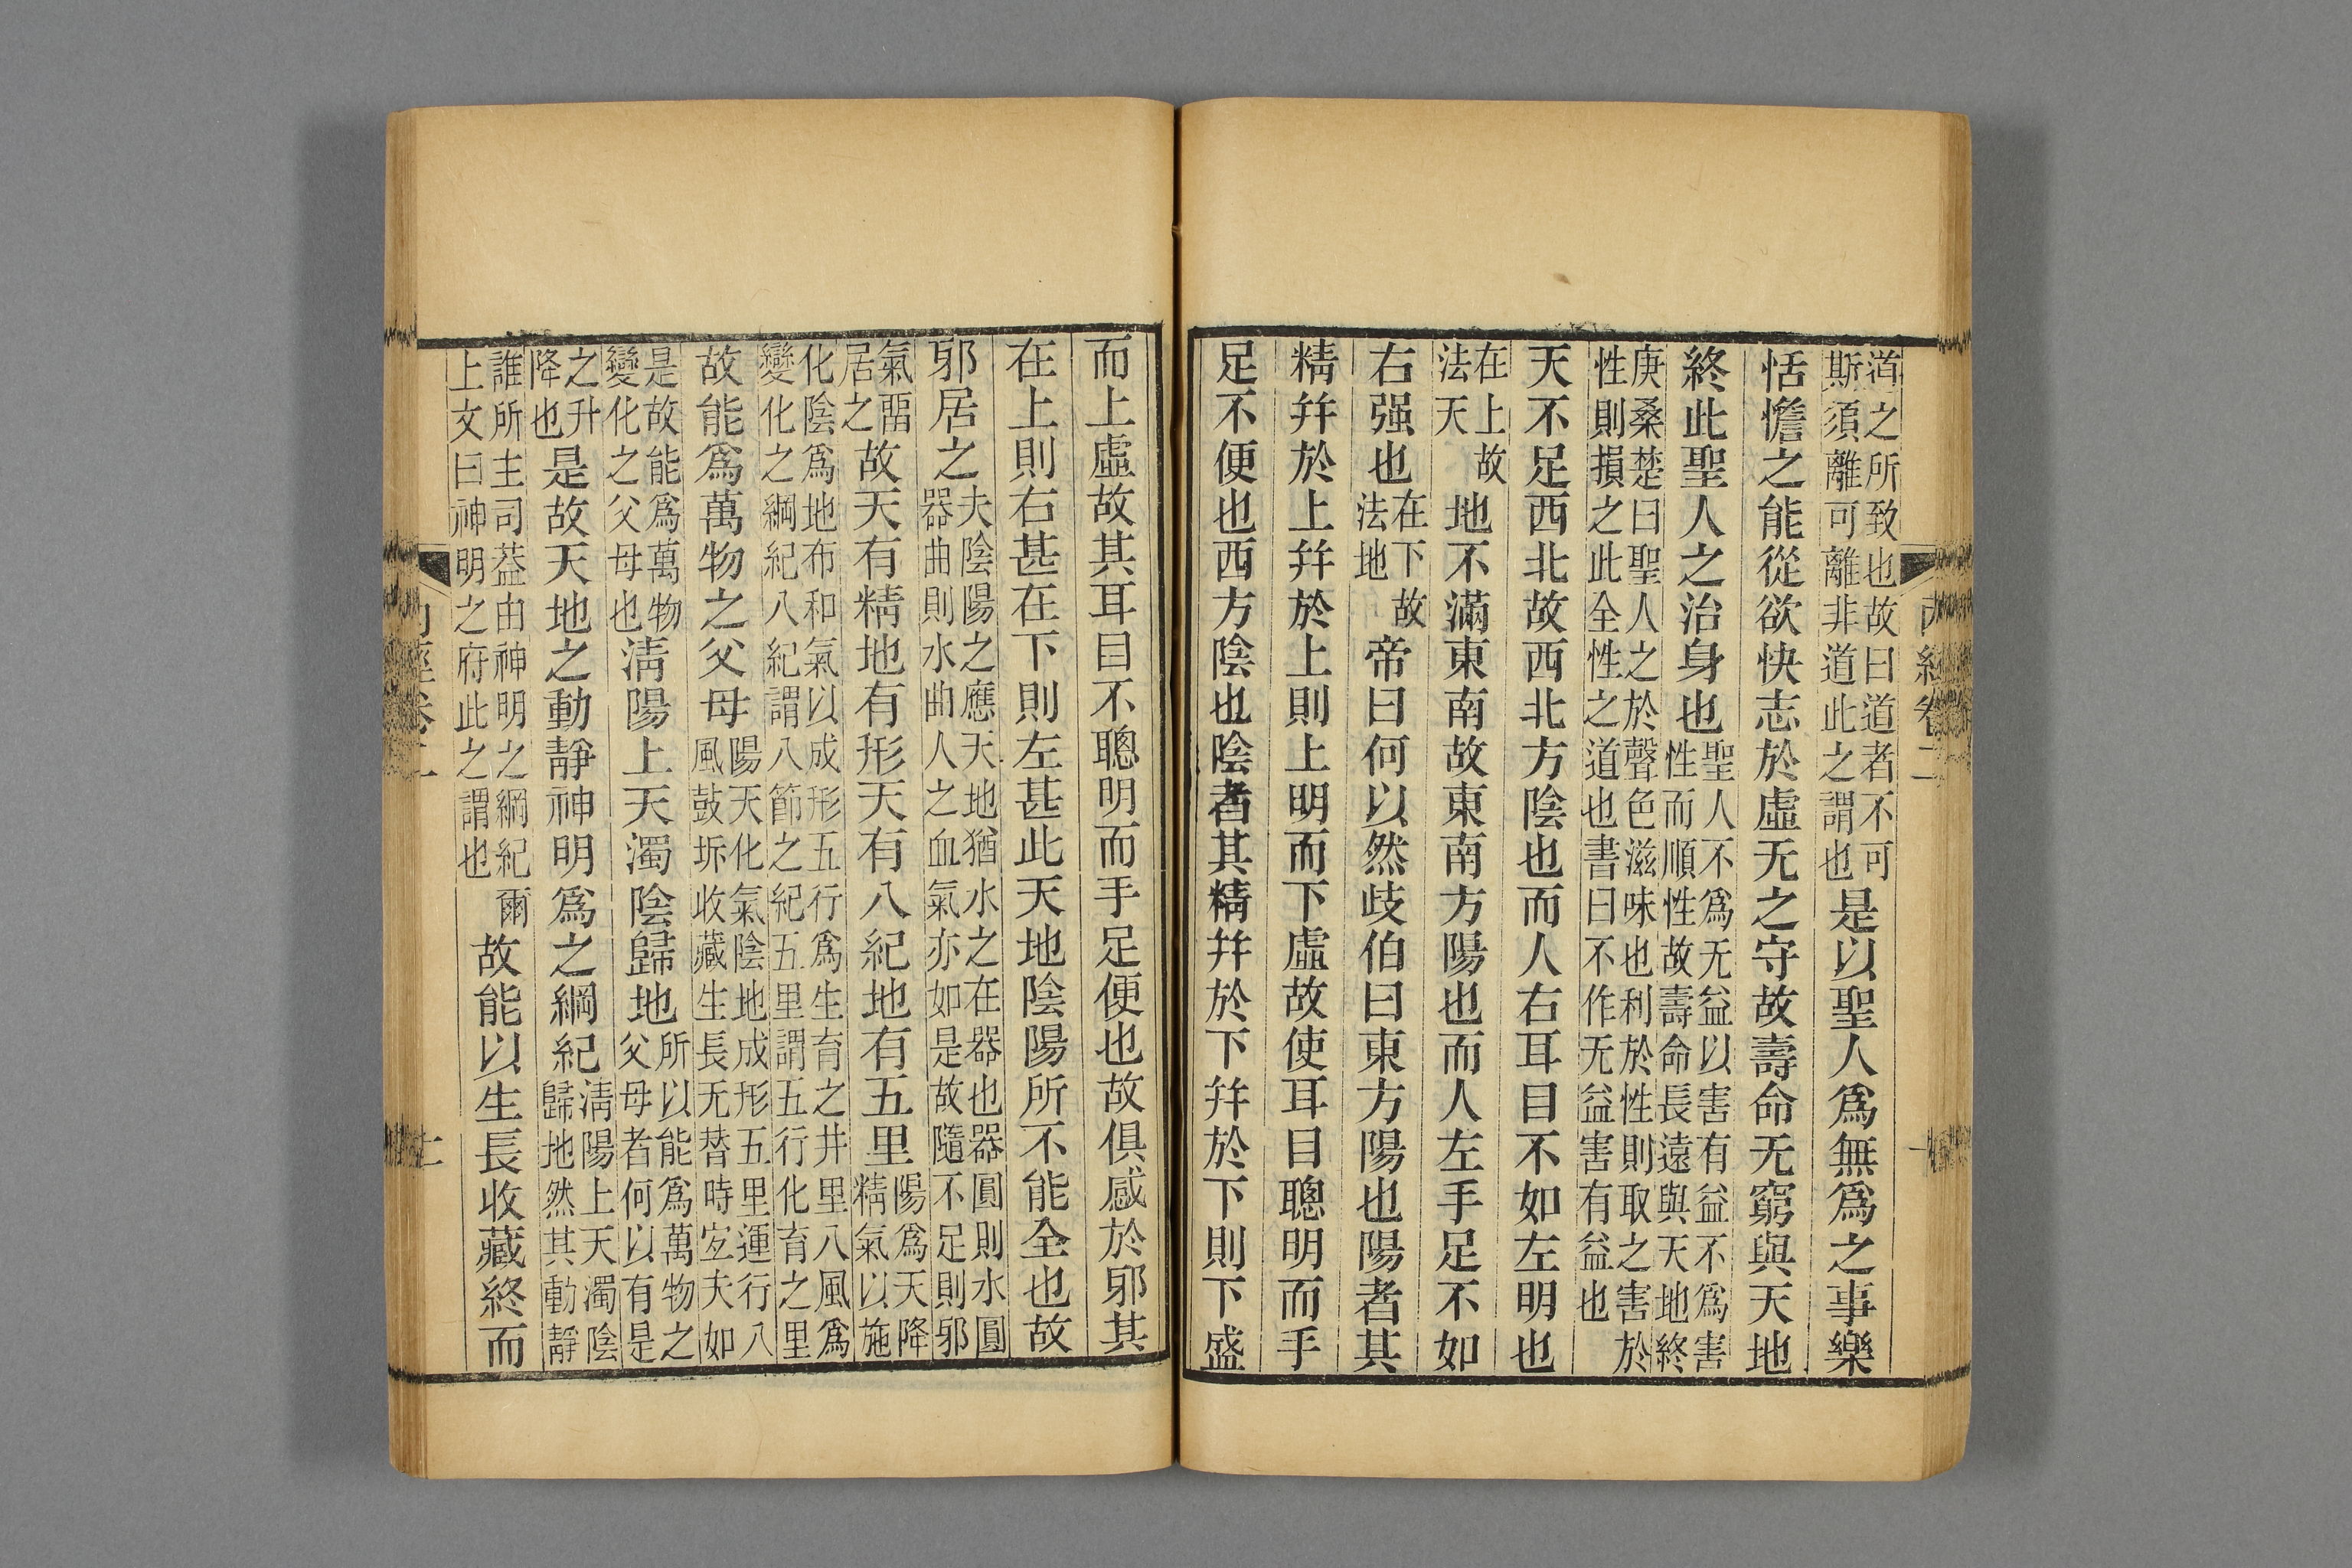 内經卷二
道之所致也故曰道者不可
斯須離可離非道此之謂也
是以聖人爲無爲之事樂
恬憺之能從欲快志於虛无之守故壽命无窮與天地
終此聖人之治身也
聖人不爲无益以害有益不爲害
性而順性故壽命長遠與天地終
庚桑楚曰聖人之於聲色滋味也利於性則取之害於
性則損之此全性之道也書曰不作无益害有益也
天不足西北故西北方陰也而人右耳目不如左明也
在上故
法天
地不滿東南故東南方陽也而人左手足不如
右强也
在下故
法地
帝曰何以然歧伯曰東方陽也陽者其
精幷於上幷於上則上明而下虛故使耳目聰明而手
足不便也西方陰也陰者其精幷於下幷於下則下盛
而上虛故其耳目不聰明而手足便也故俱感於邪其
在上則右甚在下則左甚此天地陰陽所不能全也故
邪居之
夫陰陽之應天地猶水之在器也器圓則水圓
器曲則水曲人之血氣亦如是故隨不足則邪
氣畱
居之
故天有精地有形天有八紀地有五里
陽爲天降
精氣以施
化陰爲地布和氣以成形五行爲生育之井里八風爲
變化之綱紀八紀謂八節之紀五里謂五行化育之里
故能爲萬物之父母
陽天化氣陰地成形五里運行八
風鼓坼收藏生長无替時宐夫如
是故能爲萬物
變化之父母也
淸陽上天濁陰歸地
所以能爲萬物之
父母者何以有是
之升
降也
是故天地之動靜神明爲之綱紀
淸陽上天濁陰
歸地然其動靜
誰所主司葢由神明之綱紀爾
上文曰神明之府此之謂也
故能以生長收藏終而
內經卷二